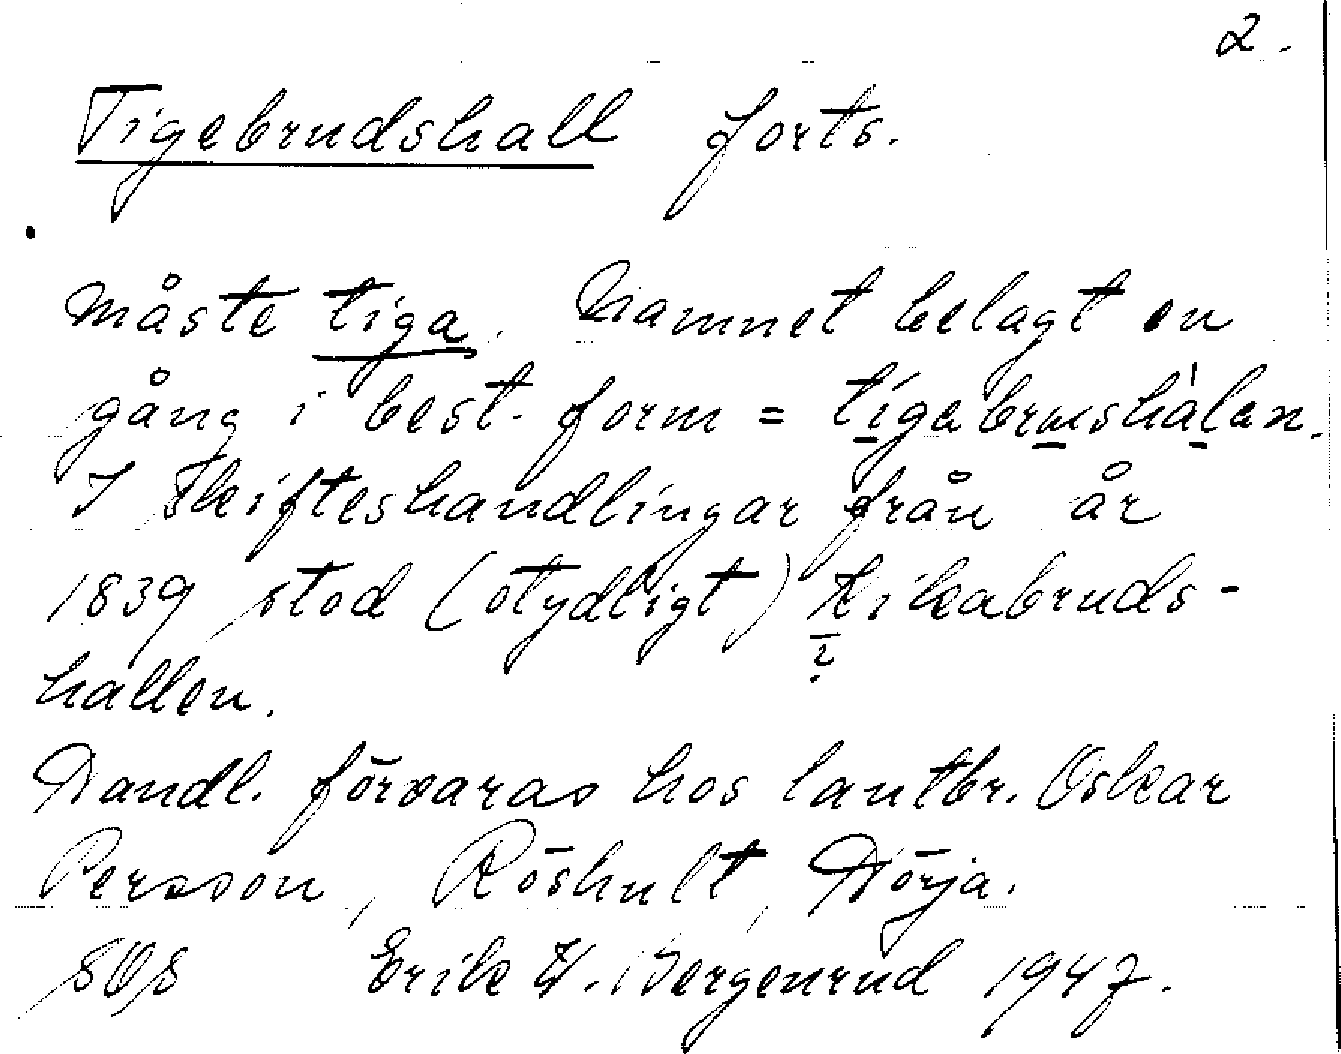 2.
Tigebrudshall forts.
måste tiga. Namnet belagt en
gång i best. form = tígebrusha̍len.
I skifteshandlingar från år
1839 stod (otydligt) kikabruds-
?
hallen.
Handl. förvaras hos lantbr. Oskar
Persson, Röshult, Hörja.
SOS Erik W. Bergenrud 1947.